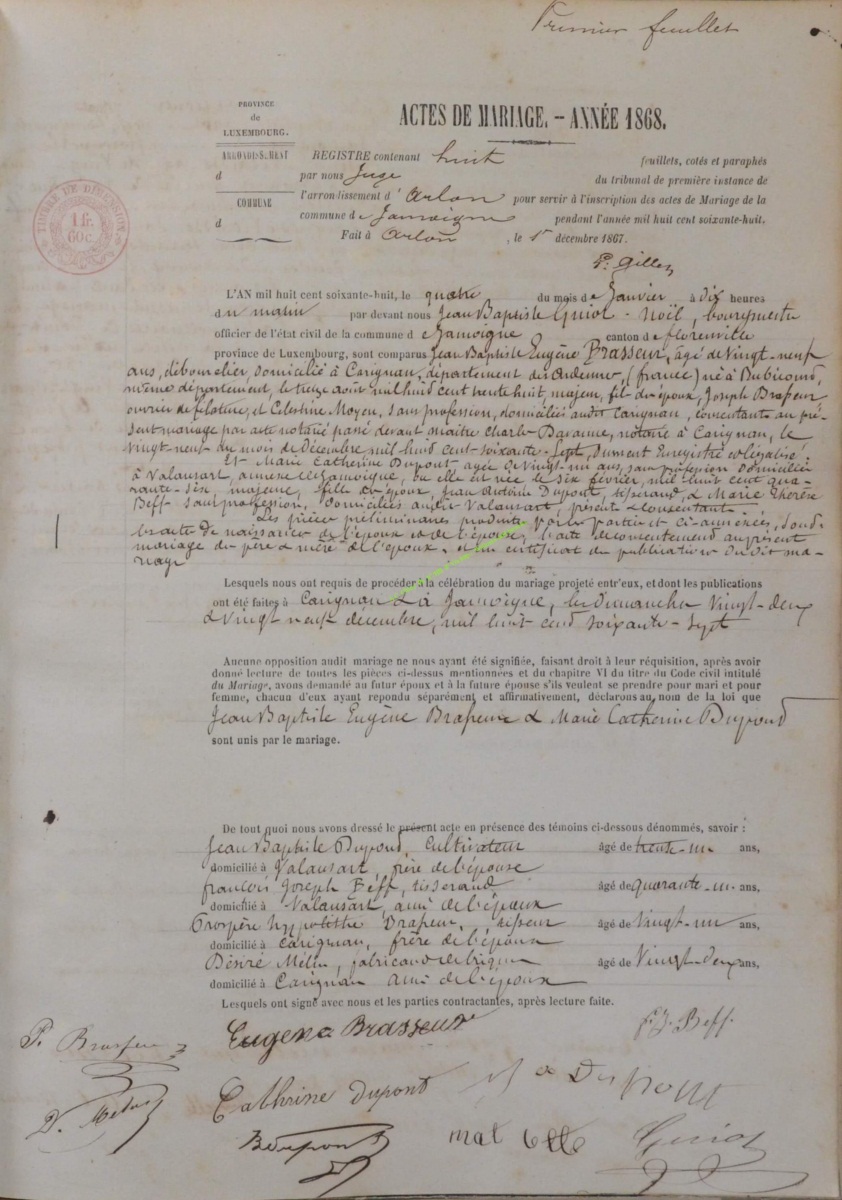 Premier feuillet
PROVINCE
de
LUXEMBOURG.
ARRONDISSEMENT
d
COMMUNE
d
TIMBRE DE DIMENSION
1 fr.
60c.
ACTES DE MARIAGE. — ANNÉE 1868.
REGISTRE contenant huit feuillets, cotés et paraphés
par nous Juge du tribunal de première instance de
l'arrondissement d'Arlon pour servir à l'inscription des actes de Mariage de la
commune de Jamoigne pendant l'année mil huit cent soixante-huit.
Fait à Arlon, le décembre 1867.
L'AN mil huit cent soixante-huit, le quatre du mois de Janvier à dix heures
du matin par devant nous Jean Baptiste Guiot - Noël, bourgmestre
officier de l'état civil de la commune de Jamoigne canton de florenville
province de Luxembourg, sont comparus Jean Baptiste Eugène Brasseur, âgé de Vingt-neuf
ans, domicilié à Carignan, département des Ardennes, (france) né à
même département, le treize août mil huit cent trente huit, majeur, fils des époux, Joseph Brasseur
ouvrier de filature, et Celestine Moyen, sans profession, domiciliés audit Carignan, consentants au pré-
sent mariage par acte notarié passé devant maître Charles notaire à Carignan, le
Vingt-neuf du mois de Décembre mil huit cent soixante-sept, dument Enregistré et légalisé.
Et Marie Catherine Dupont, agée de Vingt-un ans, sans profession domiciliée
à Valansart, annexe de Jamoigne, où elle est née le six février, mil huit cent qua-
rante-six majeure, fille des époux, Jean Antoine Dupont, tisserand, & Marie Thérèse
Beff sans profession, domiciliés audit Valansart, présents & consentants.
Les pièces préliminaires produites par les parties et ci-annexées, sont
l'extrait de naissance de l'époux et de l'épouse, l'acte de consentement au présent
mariage des père & mère de l'époux, et un certificat de publications dudit ma-
riage
Lesquels nous ont requis de procéder à la célébration du mariage projeté entr'eux, et dont les publications
ont été faites à Carignan & à Jamoigne, les Dimanches Vingt-deux
& Vingt neuf decembre, mil huit cent soixante-sept
Aucune opposition audit mariage ne nous ayant été signifiée, faisant droit à leur réquisition, après avoir
donné lecture de toutes les pièces ci-dessus mentionnées et du chapitre VI du titre du Code civil intitulé
du Mariage, avons demandé au futur époux et à la future épouse s'ils veulent se prendre pour mari et pour
femme, chacun d'eux ayant repondu séparément et affirmativement, déclarons au nom de la loi que
Jean Baptiste Eugène Brasseur & Marie Catherine Dupont
sont unis par le mariage.
De tout quoi nous avons dressé le présent acte en présence des témoins ci-dessous dénommés, savoir :
Jean Baptiste Dupont, Cultivateur âgé de trente-un ans,
domicilié à Valansart, frère de l'épouse
francois Joseph Beff, tisserand âgé de quarante-un ans,
domicilié à Valansart, ami de l'époux
Prospère Hypolithe Brasseur, âgé de Vingt-un ans,
domicilié à Carignan, frère de l'époux
Désiré Melin, fabricant de briques âgé de Vingt-deux ans,
domicilié à Carignan ami de l'époux
Lesquels ont signé avec nous et les parties contractantes, après lecture faite.
P. Brasseur
Eugene Brasseur
F J Beff.
Cathrine Dupont
D. Melin
Guiot